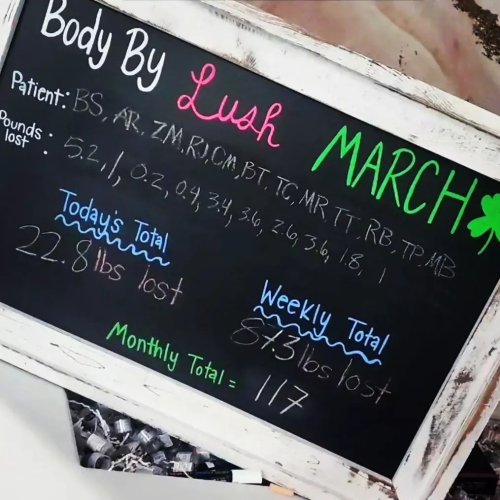 Body By Lush
MARCH
Patient: BS, AR, ZM, RJ, CM, BT, TC, MR, TT, RB, TP, MB
Pounds lost: 5.2, 1, 0.2, 0.4, 3.4, 3.6, 2.6, 3.6, 1.8, 1
Today's Total
22.8 lbs lost
Weekly Total
87.3 lbs lost
Monthly Total = 117